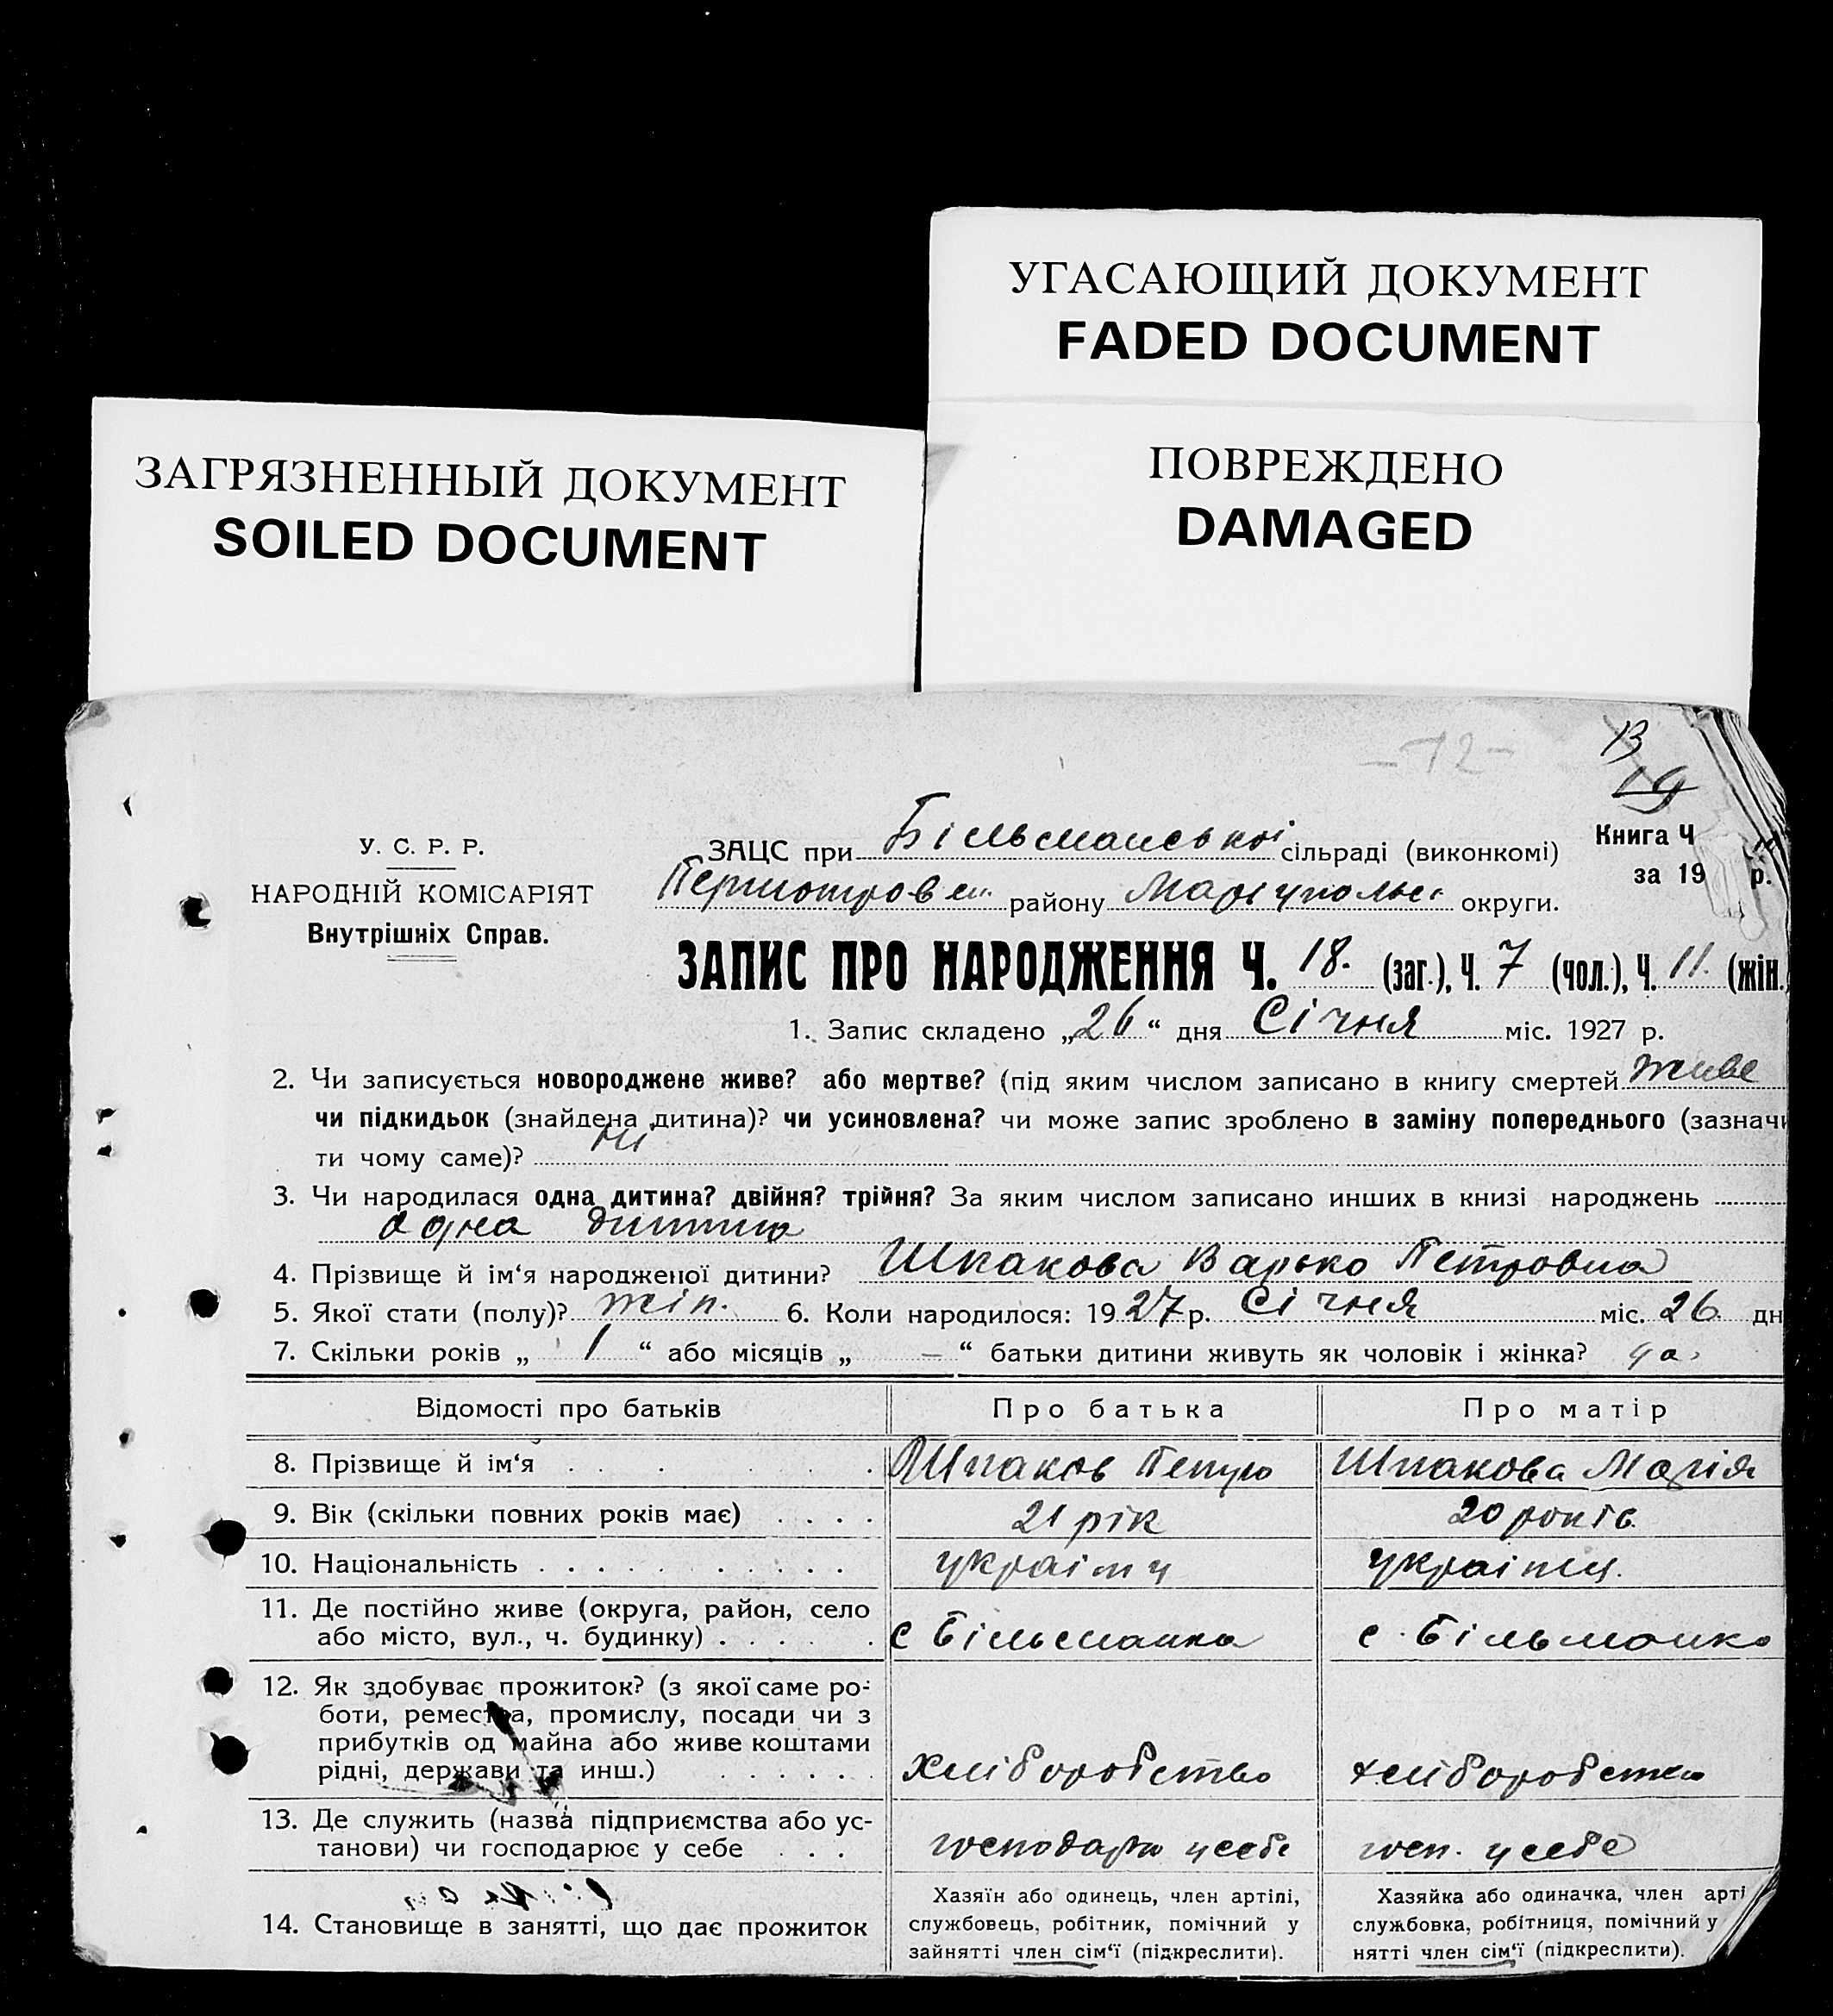 УГАСАЮЩИЙ ДОКУМЕНТ
FADED DOCUMENT
ЗАГРЯЗНЕННЫЙ ДОКУМЕНТ
SOILED DOCUMENT
ПОВРЕЖДЕНО
DAMAGED
-12-
13
19
У. С. Р. Р.
НАРОДНІЙ КОМІСАРІЯТ
Внутрішніх Справ.
ЗАЦС при Більманської сільраді (виконкомі)
району Маріупольс округи.
Книга Ч
за 19 р.
ЗАПИС ПРО НАРОДЖЕННЯ Ч. 18. (заг.), Ч. 7 (чол.), Ч. 11. (жін.)
1. Запис складено „26“ дня Січня міс. 1927 р.
2. Чи записується новороджене живе? або мертве? (під яким числом записано в книгу смертей живе
чи підкидьок (знайдена дитина)? чи усиновлена? чи може запис зроблено в заміну попереднього (зазначи
ти чому саме)? ні
3. Чи народилася одна дитина? двійня? трійня? За яким числом записано инших в книзі народжень
одна дитина
4. Прізвище й ім‘я народженої дитини? Шпакова Варька Петровна
5. Якої стати (полу)? жін. 6. Коли народилося: 1927 р. Січня міс. 26 дн
7. Скільки років „ 1 “ або місяців „ — “ батьки дитини живуть як чоловік і жінка? да
Відомості про батьків Про батька Про матір
8. Прізвище й ім‘я Шпаков Петро Шпакова Марія
9. Вік (скільки повних років має) 21 рік 20 років
10. Національність україн ц українц.
11. Де постійно живе (округа, район, село
або місто, вул., ч. будинку) с Більманка с. Більманка
12. Як здобуває прожиток? (з якої саме ро-
боти, ремества, промислу, посади чи з
прибутків од майна або живе коштами
рідні, держави та инш.) хліборобство хліборобство
13. Де служить (назва підприємства або ус-
танови) чи господарює у себе господарю у себе госп. у себе
14. Становище в занятті, що дає прожиток
Хазяїн або одинець, член артілі,
службовець, робітник, помічний у
зайнятті член сім‘ї (підкреслити).
Хазяйка або одиначка, член арті
службовка, робітниця, помічний у
нятті член сім‘ї (підкреслити).